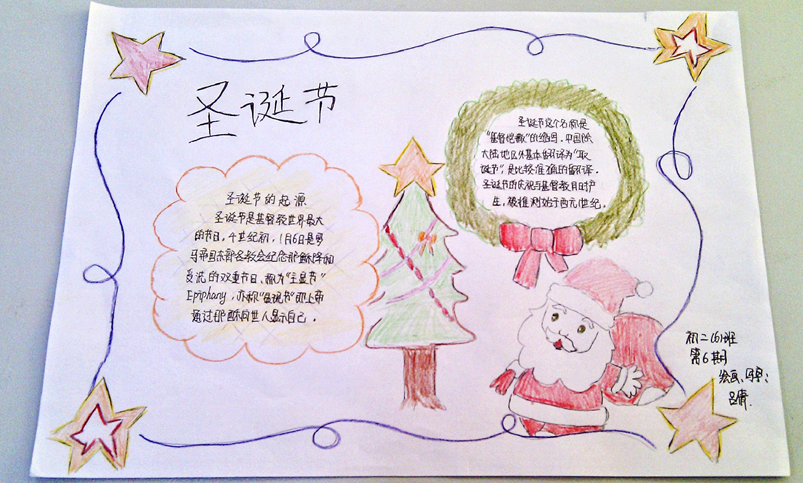 圣诞节
圣诞节的起源
圣诞节是基督教世界最大
的节日。4世纪初,1月6日是罗
马帝国东部各教会纪念耶稣降和
受洗的双重节日、称为"主显节"
Epiphany,亦称"显现节"即上帝
通过耶稣向世人显示自己。
圣诞节这个名称是
"基督弥撒"的缩写。中国除
大陆地区外基本翻译为"耶
诞节",是比较准确的翻译。
圣诞节的庆祝与基督教同时产
生,被推测始于西元1世纪。
初二(6)班
第6期
绘画、